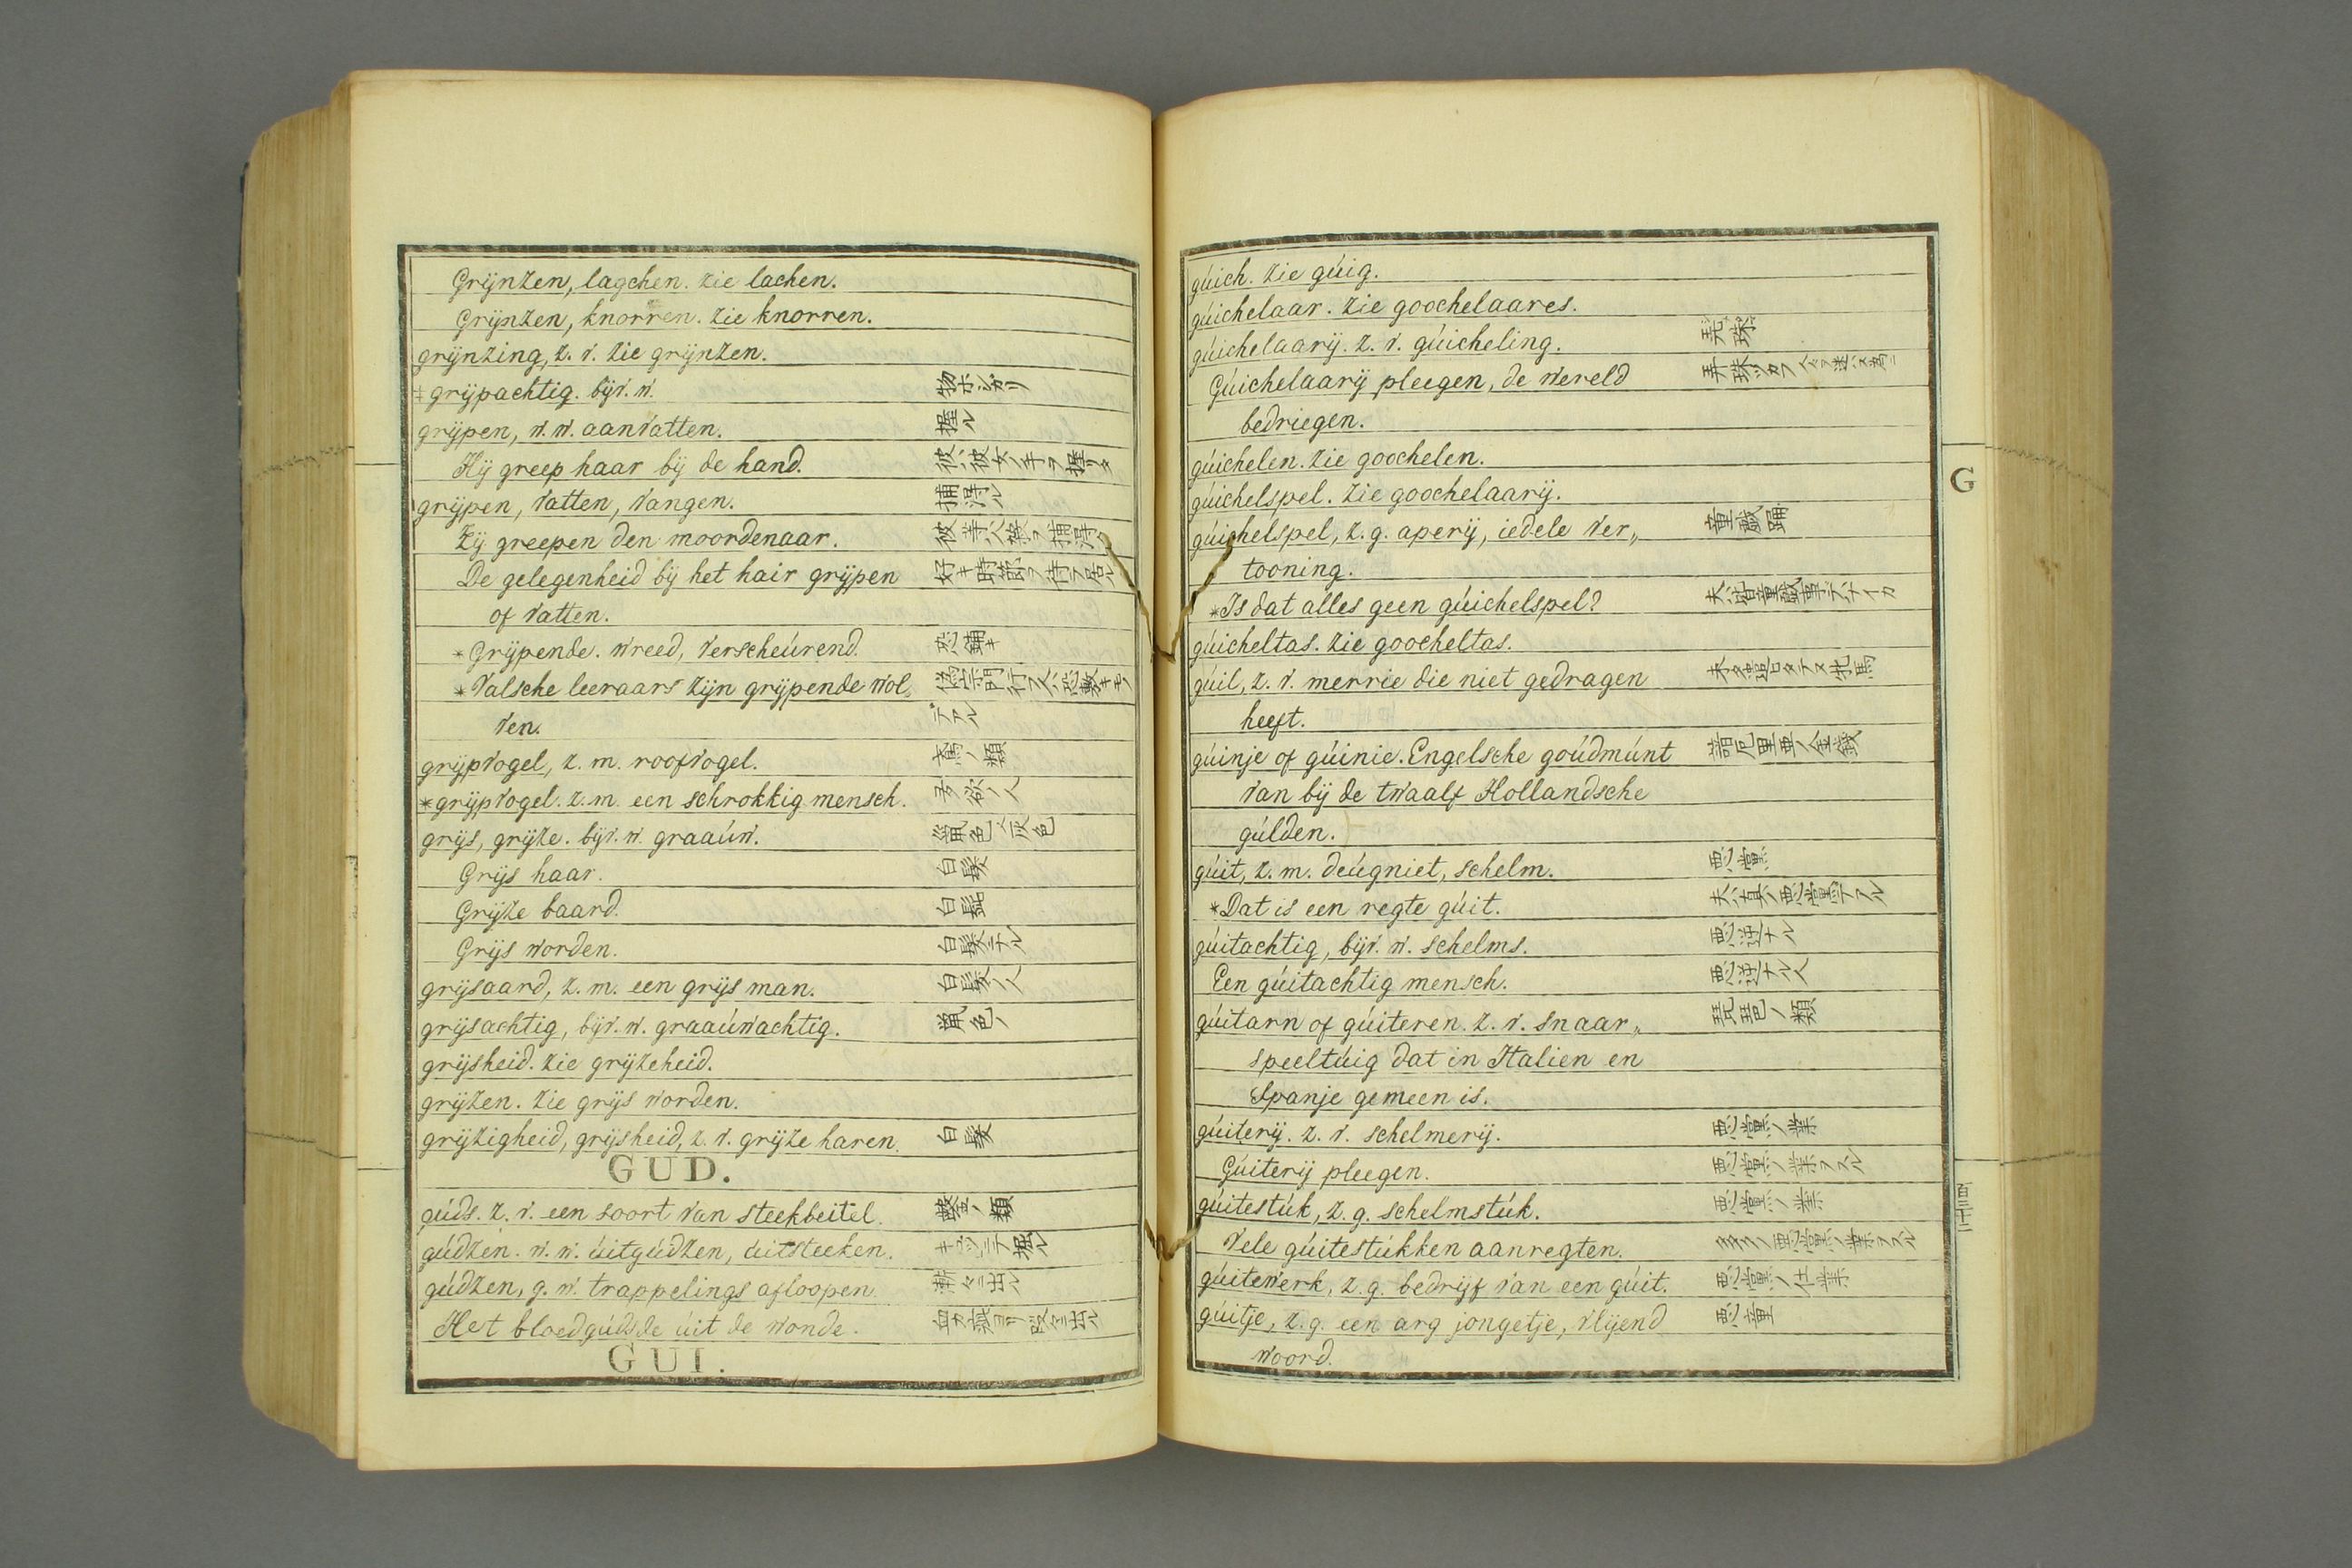 Grijnzen, lagchen. zie lachen.
Grijnzen, knorren. zie knorren.
grijnzing, z. v. zie grijnzen.
‡ grijpachtig. bijv. w. 物ホシガリ
grijpen, w. w. aanvatten. 握ル
Hij greep haar bij de hand. 彼ハ彼女ノ手ヲ握リタ
grijpen, vatten, vangen. 捕得ル
Zij greepen den moordenaar.
De gelegenheid bij het hair grijpen 好キ時節ヲ待テ居ル
of vatten.
* Grijpende. wreed, verscheúrend.
* Valsche leeraars zijn grijpende wol„
ven. デアル
grijpvogel, z. m. roofvogel. 鷹ノ類
* grijpvogel. z. m. een schrokkig mensch. 多欲ノ人
grijs, grijze. bijv. w. graaúw. 鼠色又灰色
Grijs haar. 白髪
Grijze baard. 白髭
Grijs worden. 白髪ニナル
grijsaard, z. m. een grijs man. 白髪ノ人
grijsachtig, bijv. w. graaúwachtig. 鼠色ノ
grijsheid. zie grijzeheid.
grijzen. zie grijs worden.
grijzigheid, grijsheid, z. v. grijze haren. 白髪
GUD.
gúds. z. v. een soort van steekbeitel. 鑿ノ類
gúdzen. w. w. úitgúdzen, úitsteeken.
gúdzen, g. w. trappelings afloopen. 漸々ニ出ル
Het bloed gúdsde úit de wonde.
GUI.
gúich. zie gúig.
gúichelaar. zie goochelaares.
gúichelaarij. z. v. gúicheling. 弄珠
Gúichelaarij pleegen, de wereld 弄珠ツカフ
bedriegen.
gúichelen. zie goochelen.
gúichelspel. zie goochelaarij.
gúichelspel, z. g. aperij, iedele ver„ 童戯踊
tooning.
* Is dat alles geen gúichelspel? 夫ハ皆童戯事デハナイカ
gúicheltas. zie goocheltas.
gúil, z. v. merrie die niet gedragen
heeft.
gúinje of gúinie. Engelsche goúdmúnt 諳厄里亜ノ金銭
van bij de twaalf Hollandsche
gúlden.
gúit, z. m. deúgniet, schelm. 悪黨
* Dat is een regte gúit. 夫ハ真ノ悪黨デアル
gúitachtig, bijv. w. schelms. 悪逆ナル
Een gúitachtig mensch. 悪逆ナル人
gúitarn of gúiteren. z. v. snaar„ 琵琶ノ類
speeltúig dat in Italien en
Spanje gemeen is.
gúiterij. z. v. schelmerij. 悪黨ノ業
Gúiterij pleegen. 悪黨ノ業ヲスル
gúitestúk, z. g. schelmstúk. 悪黨ノ業
Vele gúitestúkken aanregten. 多クノ悪黨ノ業ヲスル
gúitewerk, z. g. bedrijf van een gúit. 悪黨ノ仕業
gúitje, z. g. een arg jongetje, vlijend 悪童
woord.
G
百三十二